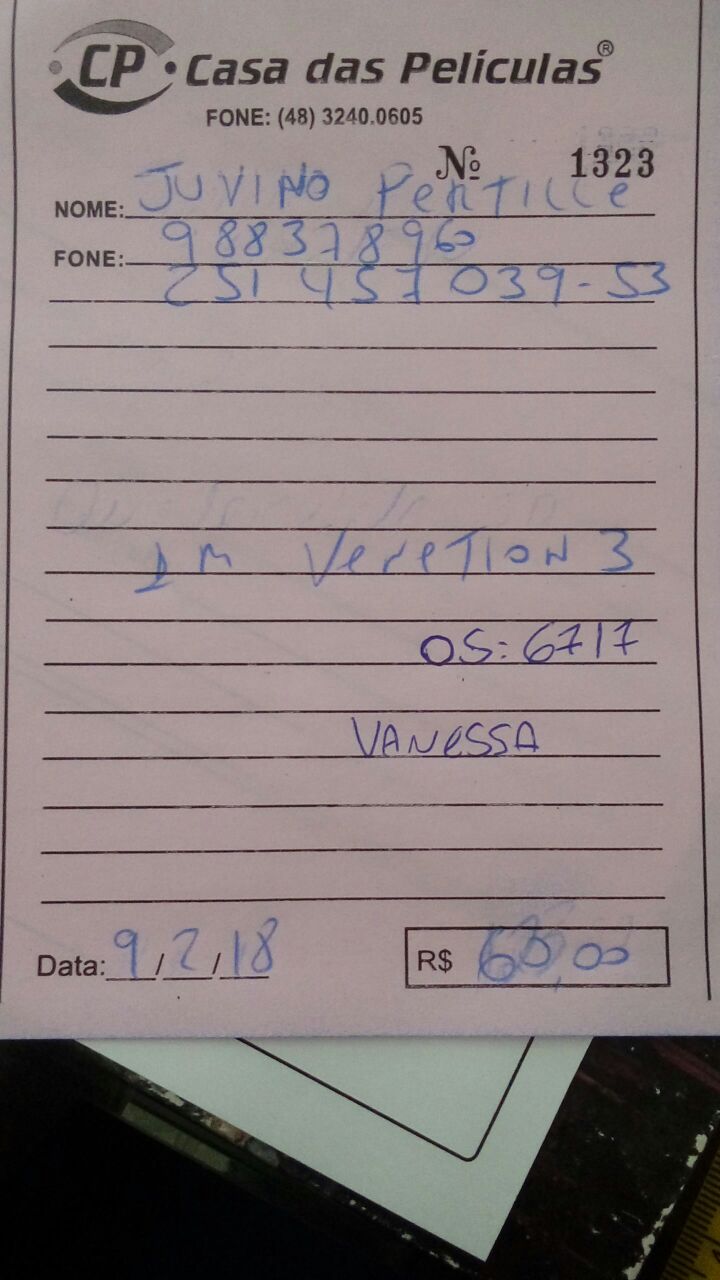 CP Casa das Películas®
FONE: (48) 3240.0605
Nº 1323
NOME: JUVINO PERTILLE
FONE: 98837896
251 457 039-53
1 M VENETION 3
OS: 6717
VANESSA
Data: 9/2/18 R$ 60,00